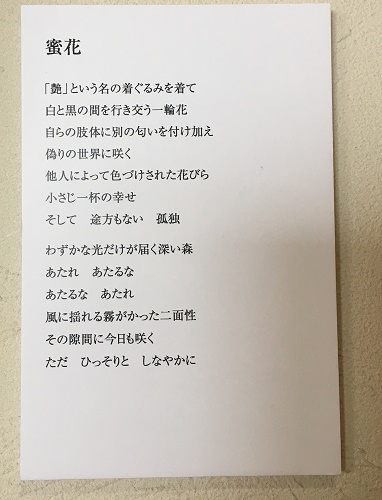 蜜花
「艶」という名の着ぐるみを着て
白と黒の間を行き交う一輪花
自らの肢体に別の匂いを付け加え
偽りの世界に咲く
他人によって色づけされた花びら
小さじ一杯の幸せ
そして　途方もない　孤独
わずかな光だけが届く深い森
あたれ　あたるな
あたるな　あたれ
風に揺れる霧がかった二面性
その隙間に今日も咲く
ただ　ひっそりと　しなやかに